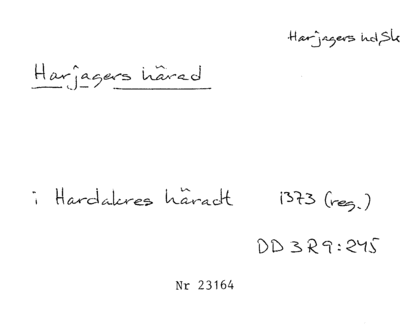 Harjagers hd, Sk
Harjagers härad
i Hardakres häradt 1373 (reg.)
DD 3 R 9:245
Nr 23164